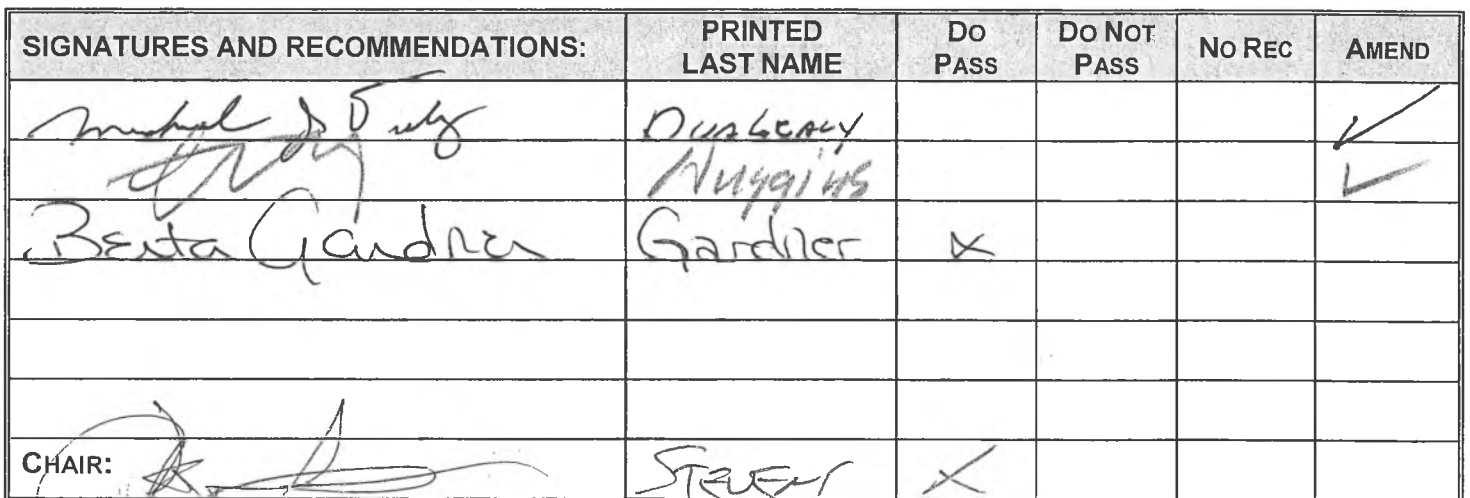 SIGNATURES AND RECOMMENDATIONS: PRINTED LAST NAME DO PASS DO NOT PASS NO REC AMEND
Michael ✓
Huggins ✓
Berta Gardner Gardner X
CHAIR: STEVENS X